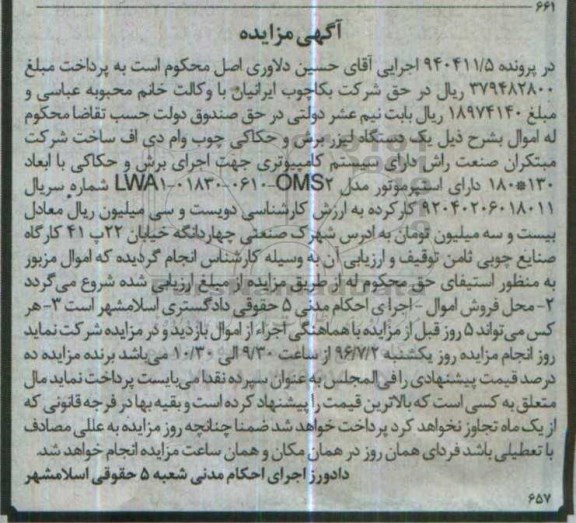 ۶۶۱
آگهی مزایده
در پرونده ۹۴۰۴۱۱/۵ اجرایی آقای حسین دلاوری اصل محکوم است به پرداخت مبلغ
۳۷۹۴۸۲۸۰۰ ریال در حق شرکت یکاچوب ایرانیان با وکالت خانم محبوبه عباسی و
مبلغ ۱۸۹۷۴۱۴۰ ریال بابت نیم عشر دولتی در حق صندوق دولت حسب تقاضا محکوم
له اموال بشرح ذیل یک دستگاه لیزر برش و حکاکی چوب وام دی اف ساخت شرکت
مبتکران صنعت راش دارای سیستم کامپیوتری جهت اجرای برش و حکاکی با ابعاد
۱۸۰*۱۳۰ دارای استپرموتور مدل LWA۱-۰۱۸۳۰-۰۶۱۰-OMS۲ شماره سریال
۹۲۰۴۰۲۰۶۰۱۸۰۱۱ کارکرده به ارزش کارشناسی دویست و سی میلیون ریال معادل
بیست و سه میلیون تومان به ادرس شهرک صنعتی چهاردانگه خیابان ۲۲پ ۴۱ کارگاه
صنایع چوبی ثامن توقیف و ارزیابی آن به وسیله کارشناس انجام گردیده که اموال مزبور
به منظور استیفای حق محکوم له از طریق مزایده از مبلغ ارزیابی شده شروع می گردد
۲- محل فروش اموال - اجرای احکام مدنی ۵ حقوقی دادگستری اسلامشهر است ۳- هر
کس می تواند ۵ روز قبل از مزایده با هماهنگی اجراء از اموال بازدید و در مزایده شرکت نماید
روز انجام مزایده روز یکشنبه ۹۶/۷/۲ از ساعت ۹/۳۰ الی ۱۰/۳۰ می باشد برنده مزایده ده
درصد قیمت پیشنهادی را فی المجلس به عنوان سپرده نقدا می بایست پرداخت نماید مال
متعلق به کسی است که بالاترین قیمت را پیشنهاد کرده است و بقیه بها در فرجه قانونی که
از یک ماه تجاوز نخواهد کرد پرداخت خواهد شد ضمنا چنانچه روز مزایده به عللی مصادف
با تعطیلی باشد فردای همان روز در همان مکان و همان ساعت مزایده انجام خواهد شد.
دادورز اجرای احکام مدنی شعبه ۵ حقوقی اسلامشهر
۶۵۷